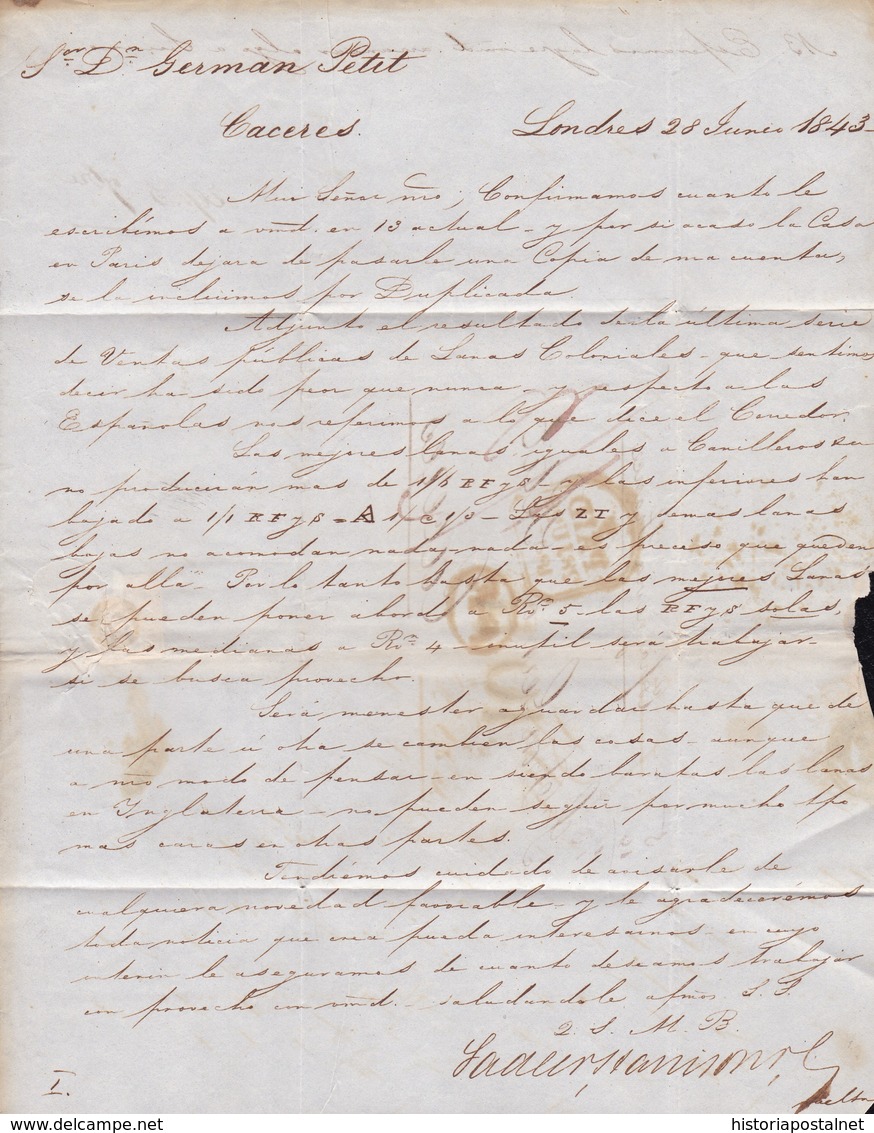 Sor. Dn. German Petit
Caceres. Londres 28 Junio 1843
Muy Señor nro; Confirmamos cuanto le
escribimos a vmd. en 13 actual - y por si acaso la Casa
en Paris dejara de pasarle una Copia de ma cuenta,
se la incluimos por Duplicada.
Adjunto el resultado de la última serie
de Ventas públicas de Lanas Coloniales - que sentimos
decir ha sido peor que nunca - y respecto a las
Españolas nos referimos a lo que dice el Corredor.
Las mejores lanas iguales a Camilleros
no producirán mas de RFyS y las inferiores han
bajado a 1/1 RFyS - y demas lanas
bajas no acomodan nada - nada - es preceso que queden
por allá - Por lo tanto hasta que las mejores Lanas
se pueden poner abord a Rs. 5 - las RFyS solas,
y las medianas a Rs. 4 - inutil será trabajar -
si se busca provecho.
Será menester aguardar hasta que de
una parte ú otra se cambien las cosas - aunque
a nro modo de pensar - en siendo baratas las lanas
en Inglaterra - no pueden seguir por mucho tpo
mas caras en otras partes.
Tendrémos cuidado de avisarle de
cualquiera novedad favorable - y le agradecerémos
toda noticia que crea pueda interesarnos - en cuyo
interin le aseguramos de cuanto deseamos trabajar
con provecho con vmd. - saludandole afmos. S. S.
Q. S. M. B.
Sadler, Harrison, y C
I. vuelta
historiapostalnet